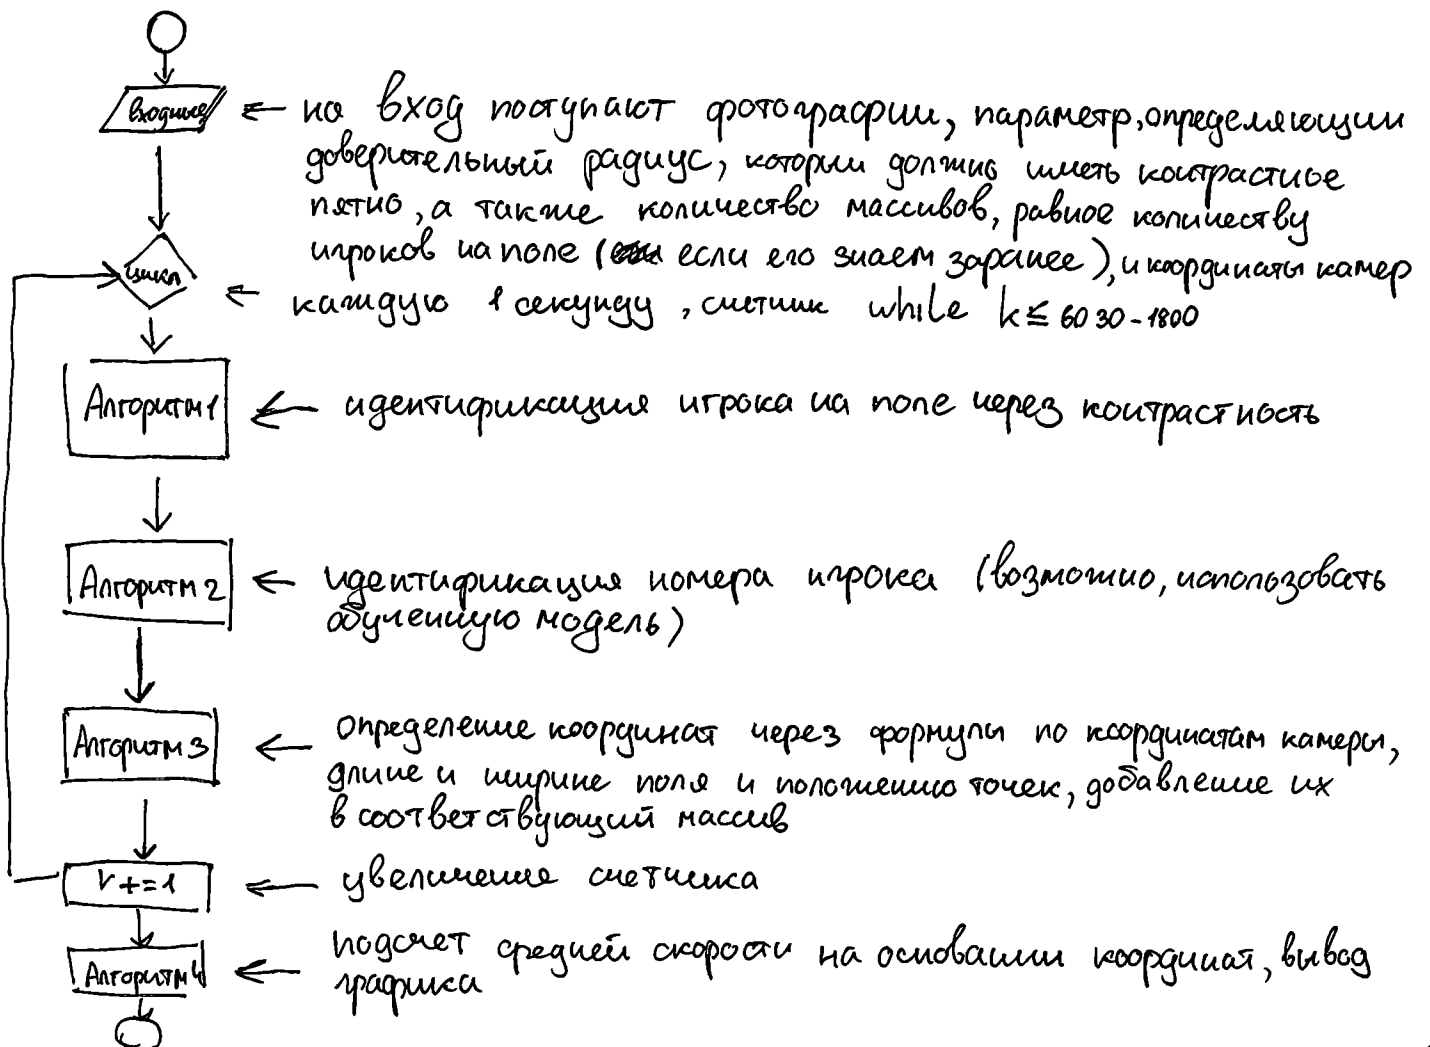 входные
на вход поступают фотографии, параметр, определяющий
доверительный радиус, который должно иметь контрастное
пятно, а также количество массивов, равное количеству
игроков на поле (если его знаем заранее), и координаты камер
цикл
каждую 1 секунду, счетчик while k ≤ 60 30 - 1800
Алгоритм 1
идентификация игрока на поле через контрастность
Алгоритм 2
идентификация номера игрока (возможно, использовать
обученную модель)
Алгоритм 3
определение координат через формулы по координатам камеры,
длине и ширине поля и положению точек, добавление их
в соответствующий массив
+=1
увеличение счетчика
Алгоритм 4
подсчет средней скорости на основании координат, вывод
графика